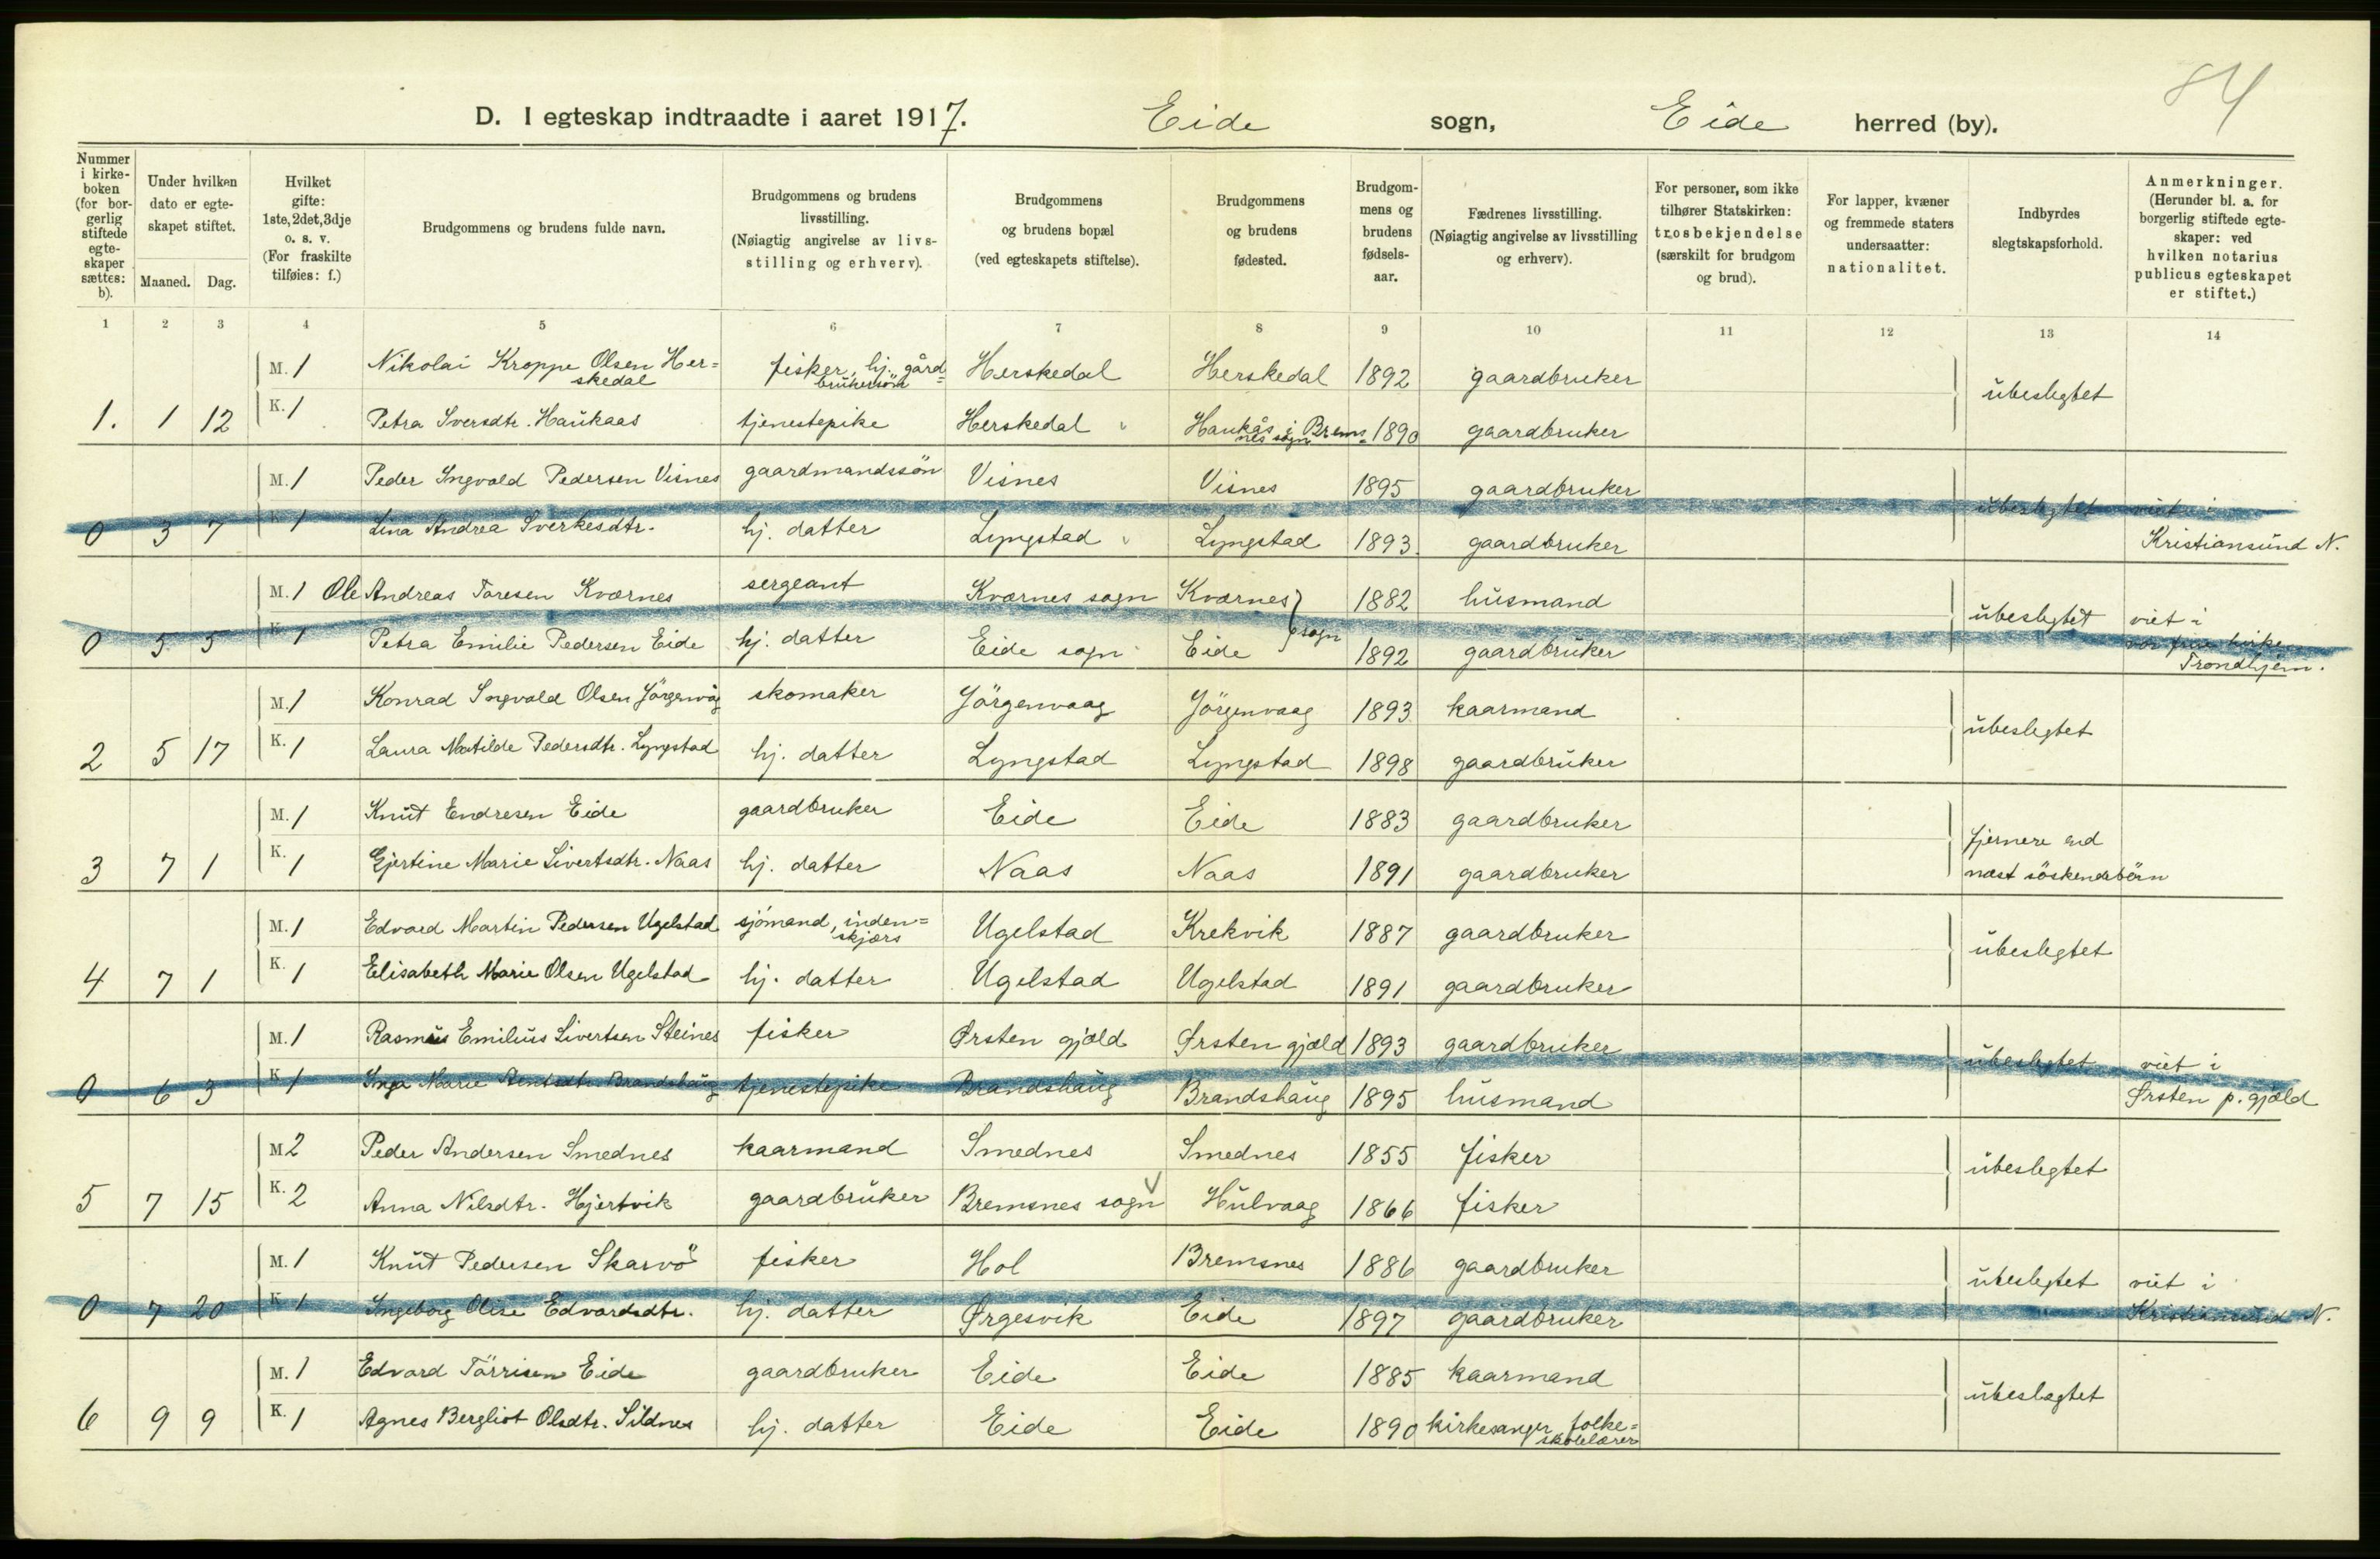 84
D. I egteskap indtraadte i aaret 1917. Eide sogn, Eide herred (by).
Nummer i kirkeboken (for borgerlig stiftede egteskaper sættes: b).
Under hvilken dato er egteskapet stiftet.
Maaned. Dag.
Hvilket gifte: 1ste, 2det, 3dje o. s. v. (For fraskilte tilføies: f.)
Brudgommens og brudens fulde navn.
Brudgommens og brudens livsstilling. (Nøiagtig angivelse av livsstilling og erhverv).
Brudgommens og brudens bopæl (ved egteskapets stiftelse).
Brudgommens og brudens fødested.
Brudgommens og brudens fødselsaar.
Fædrenes livsstilling. (Nøiagtig angivelse av livsstilling og erhverv).
For personer, som ikke tilhører Statskirken: trosbekjendelse (særskilt for brudgom og brud).
For lapper, kvæner og fremmede staters undersaatter: nationalitet.
Indbyrdes slegtskapsforhold.
Anmerkninger. (Herunder bl. a. for borgerlig stiftede egteskaper: ved hvilken notarius publicus egteskapet er stiftet.)
1 2 3 4 5 6 7 8 9 10 11 12 13 14
M. 1 Nikolai Kroppe Olsen Herskedal fisker, hj. gårdbrukersön Herskedal Herskedal 1892 gaardbruker ubeslegtet
1. 1 12 K. 1 Petra Iversdtr. Haukaas tjenestepike Herskedal Haukås i Bremsnes sogn 1890 gaardbruker
M. 1 Peder Ingvald Pedersen Visnes gaardmandssön Visnes Visnes 1895 gaardbruker ubeslegtet viet i
0 3 7 K 1 Lina Andrea Sverkesdtr. hj. datter Lyngstad Lyngstad 1893 gaardbruker Kristiansund N.
M. 1 Ole Andreas Taresen Kværnes sergeant Kværnes sogn Kværnes } sogn 1882 husmand ubeslegtet viet i
0 5 5 K 1 Petra Emilie Pedersen Eide hj. datter Eide sogn Eide 1892 gaardbruker vor frue kirke
Trondhjem.
M. 1 Konrad Ingvald Olsen Jörgenvåg skomaker Jörgenvaag Jörgenvaag 1893 kaarmand ubeslegtet
2 5 17 K. 1 Laura Matilde Pedersdtr. Lyngstad hj. datter Lyngstad Lyngstad 1898 gaardbruker
M. 1 Knut Endresen Eide gaardbruker Eide Eide 1883 gaardbruker fjernere end
3 7 1 K. 1 Gjertine Marie Sivertsdtr. Naas hj. datter Naas Naas 1891 gaardbruker næst söskendebörn
M. 1 Edvard Martin Pedersen Ugelstad sjömand, indenskjærs Ugelstad Krekvik 1887 gaardbruker ubeslegtet
4 7 1 K. 1 Elisabeth Marie Olsen Ugelstad hj. datter Ugelstad Ugelstad 1891 gaardbruker
M. 1 Rasmus Emilius Sivertsen Steines fisker Ørsten gjæld Ørsten gjæld 1893 gaardbruker ubeslegtet viet i
0 6 3 K 1 Inga Marie Brandshaug tjenestepike Brandshaug Brandshaug 1895 husmand Ørsten p. gjæld
M 2 Peder Andersen Smednes kaarmand Smednes Smednes 1855 fisker ubeslegtet
5 7 15 K. 2 Anna Nilsdtr. Hjertvik gaardbruker Bremsnes sogn Hulvaag 1866 fisker
M. 1 Knut Pedersen Skarvö fisker Hol Bremsnes 1886 gaardbruker ubeslegtet viet i
0 7 20 K 1 Ingeborg Olise Edvardsdtr. hj. datter Ørgesvik Eide 1897 gaardbruker Kristiansund N.
M. 1 Edvard Törrisen Eide gaardbruker Eide Eide 1885 kaarmand ubeslegtet
6 9 9 K. 1 Agnes Bergliot Olsdtr. Sildnes hj. datter Eide Eide 1890 kirkesanger folkeskolelærer